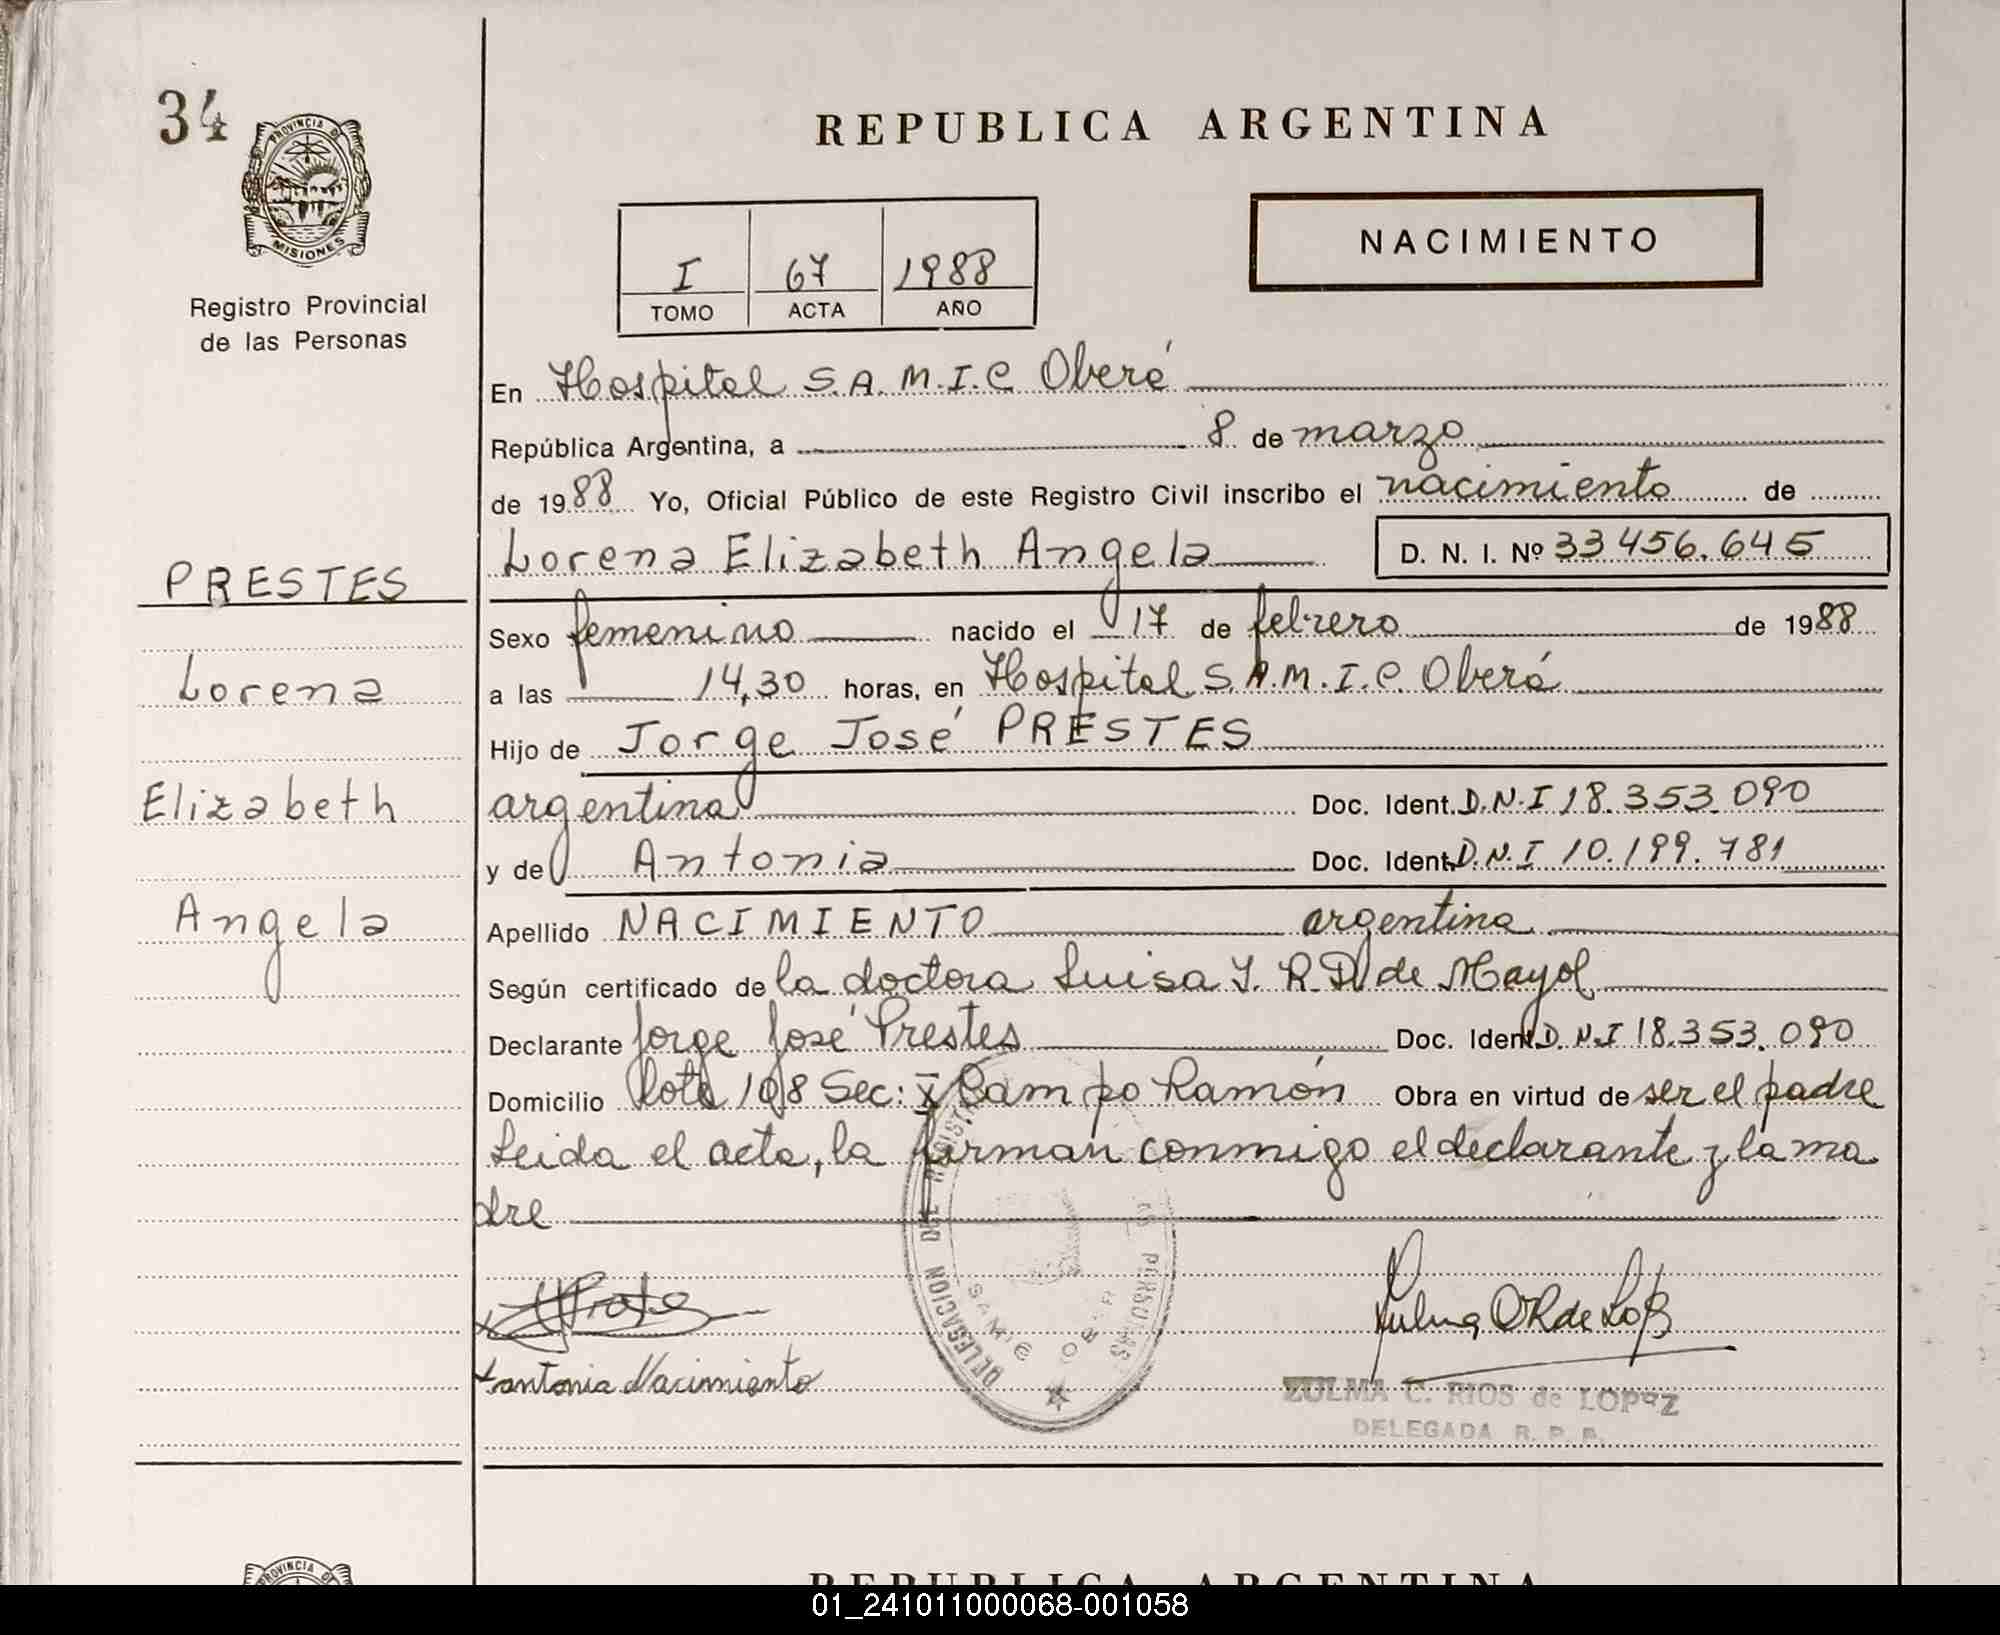 34
PROVINCIA DE
MISIONES
Registro Provincial
de las Personas
REPUBLICA ARGENTINA
NACIMIENTO
I 67 1988
TOMO ACTA AÑO
En Hospital S.A.M.I.C Oberá
República Argentina, a 8 de marzo
de 1988 Yo, Oficial Público de este Registro Civil inscribo el nacimiento de
Lorena Elizabeth Angela D. N. I. Nº 33 456.645
PRESTES
Lorena
Elizabeth
Angela
Sexo femenino nacido el 17 de febrero de 1988
a las 14,30 horas, en Hospital S.A.M.I.C. Oberá
Hijo de Jorge José PRESTES
argentina Doc. Ident. D.N.I 18.353.090
y de Antonia Doc. Ident. D.N.I 10.199.781
Apellido NACIMIENTO argentina
Según certificado de la doctora Luisa Y. R. D. de Mayol
Declarante Jorge José Prestes Doc. Ident D.N.I 18.353.090
Domicilio lote 108 Sec: X Campo Ramón Obra en virtud de ser el padre
Leida el acta, la firman conmigo el declarante y la ma
dre
DELEGACION DEL REGISTR AS PERSONAS
SAMIC OBER
Antonia Nacimiento
ZULMA C. RIOS de LOPEZ
DELEGADA R. P. P.
PROVINCIA DE
REPUBLICA ARGENTINA
01_241011000068-001058